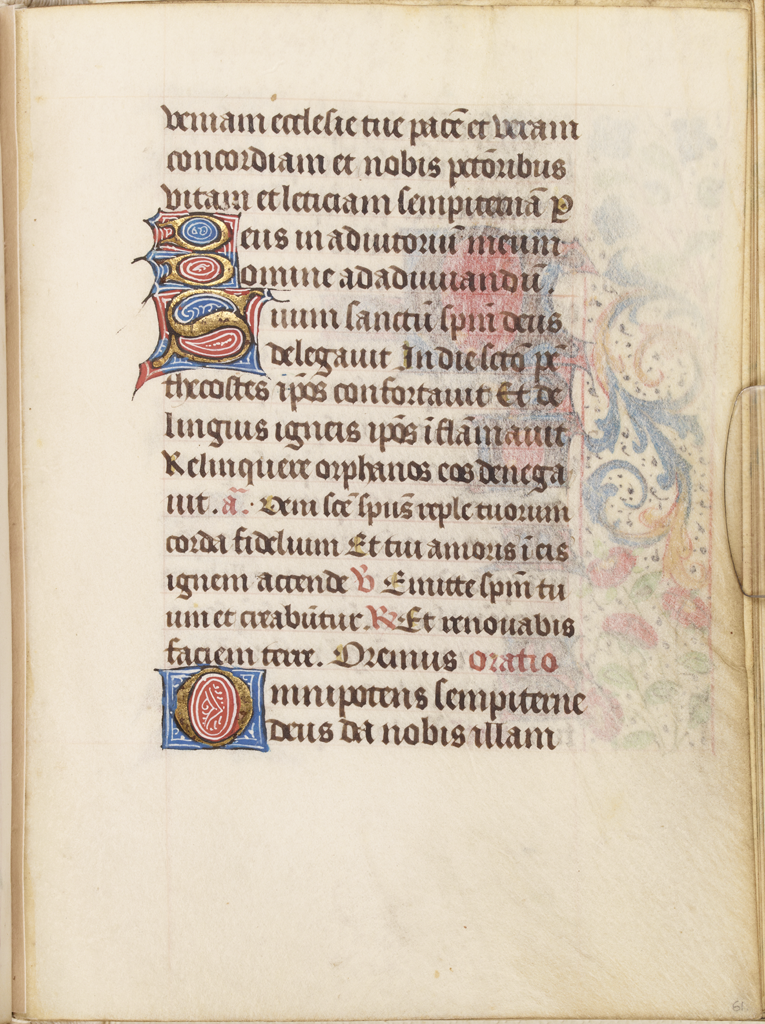 veniam ecclesie tue pacē et veram
concordiam et nobis pctōribus
vitam et leticiam sempiternā P
Deus in adiutoriū meum
Domine ad adiuuandū.
Suum sanctū spm̄ deus
delegauit In die scто̄ pē
thecostes ip̄os confortauit Et de
linguis igneis ip̄os īflāmauit
Relinquere orphanos eos denega
uit. a͞. Veni scē spūs reple tuorum
corda fidelium Et tui amoris ī eis
ignem accende V̄ Emitte spm̄ tu
um et creabūtur. R̄ Et renouabis
faciem terre. Oremus oratio
Omnipotens sempiterne
deus da nobis illam
61